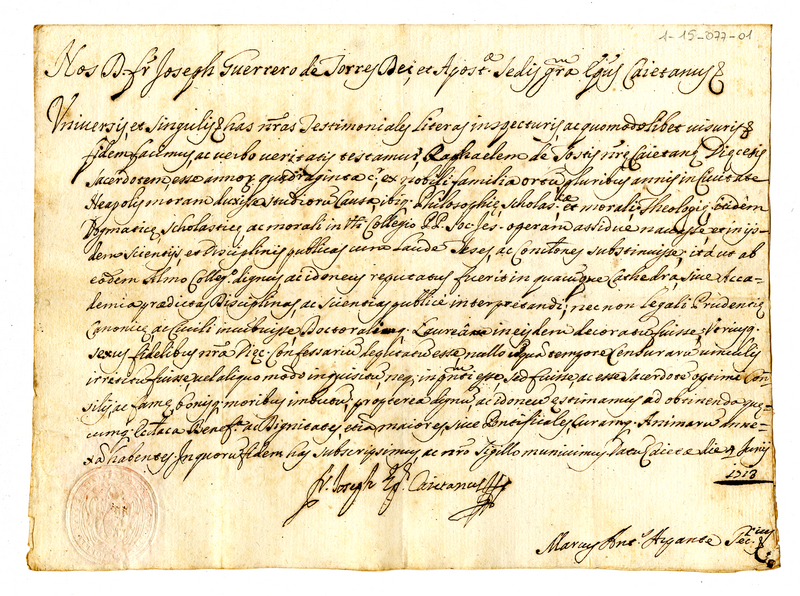 1-15-077-01
Nos D. fr Joseph Guerrero de Torres Dei, et Apost.ae Sedis grã Eps Caietanus
Universis et Singulis has nr̃as Testimoniales Literas inspecturis ac quomodolibet visuris
fidem facimus, ac verbo veritatis testamur, Raphaelem de nr̃e Caietanę Dięcesis
Sacerdotem esse annor quadraginta et ex nobili familia ortũ pluribus annis in Civitate
Neapolis moram duxisse studiorũ Causa, ibiq. Philosophię, Scholas.cę et morali Theologię, Eidem
Dogmaticę, Scholasticę, ac morali in Collegio P.P. Soc. Jes. operam assidue navasse, et in ijs-
dem Scientijs, et Disciplinis publicas cum laude Teses, ac substinuisse, ita ut ab
eodem Almo Colleg.o dignus, ac idoneus reputatus fuerit in quacuque Cathedra, sive Acca-
demia prædictas Disciplinas, ac Scientias publicè interpretandi, nec non legali Prudentię
Canonicę, ac Civili incubuisse, Doctoraliq. Laurea in eisdem decoratũ fuisse, Utriusq.
sexus fidelibus nr̃a Dięc. Confessariũ deputatũ esse, nullo unquã tempore Censurarũ vinculis
irretitũ fuisse, vel aliquo modo inquisitũ, neq. esse, sed fuisse, ac esse Sacerdotẽ optimę Con-
silij, ac famę, bonisq. moribus imbutũ, propterea dignũ, ac idoneũ estimamus ad obtinenda quę-
cumq. Benef.a, ac Dignitates etiã maiores, sive Pontificales, Curamq. Animarũ anne-
xã habentes. In quorũ fidem has subscripsimus, ac nr̃o Sigillo munivimus. Datũ Caietæ die 4 Junij
1713
fr. Joseph Eps. Caietanus
Marcus Ant.s Sec.rius